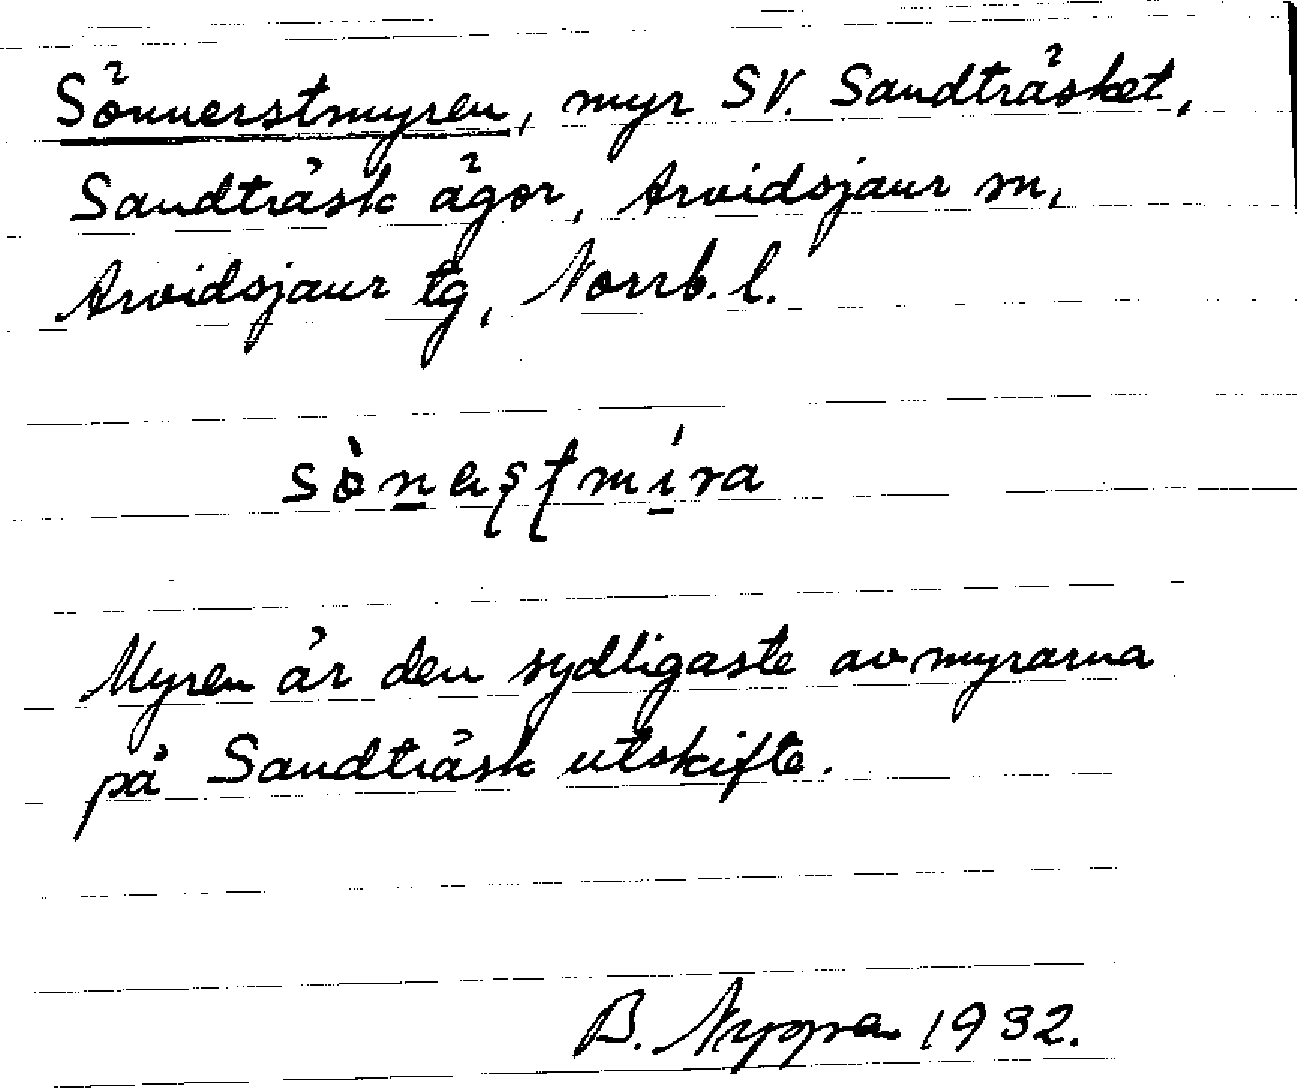 Sönnerstmyren, myr SV. Sandträsket,
Sandträsk ägor, Arvidsjaur sn,
Arvidsjaur tg, Norrb. l.
Myren är den sydligaste av myrarna
på Sandträsk utskifte.
B. 1932.